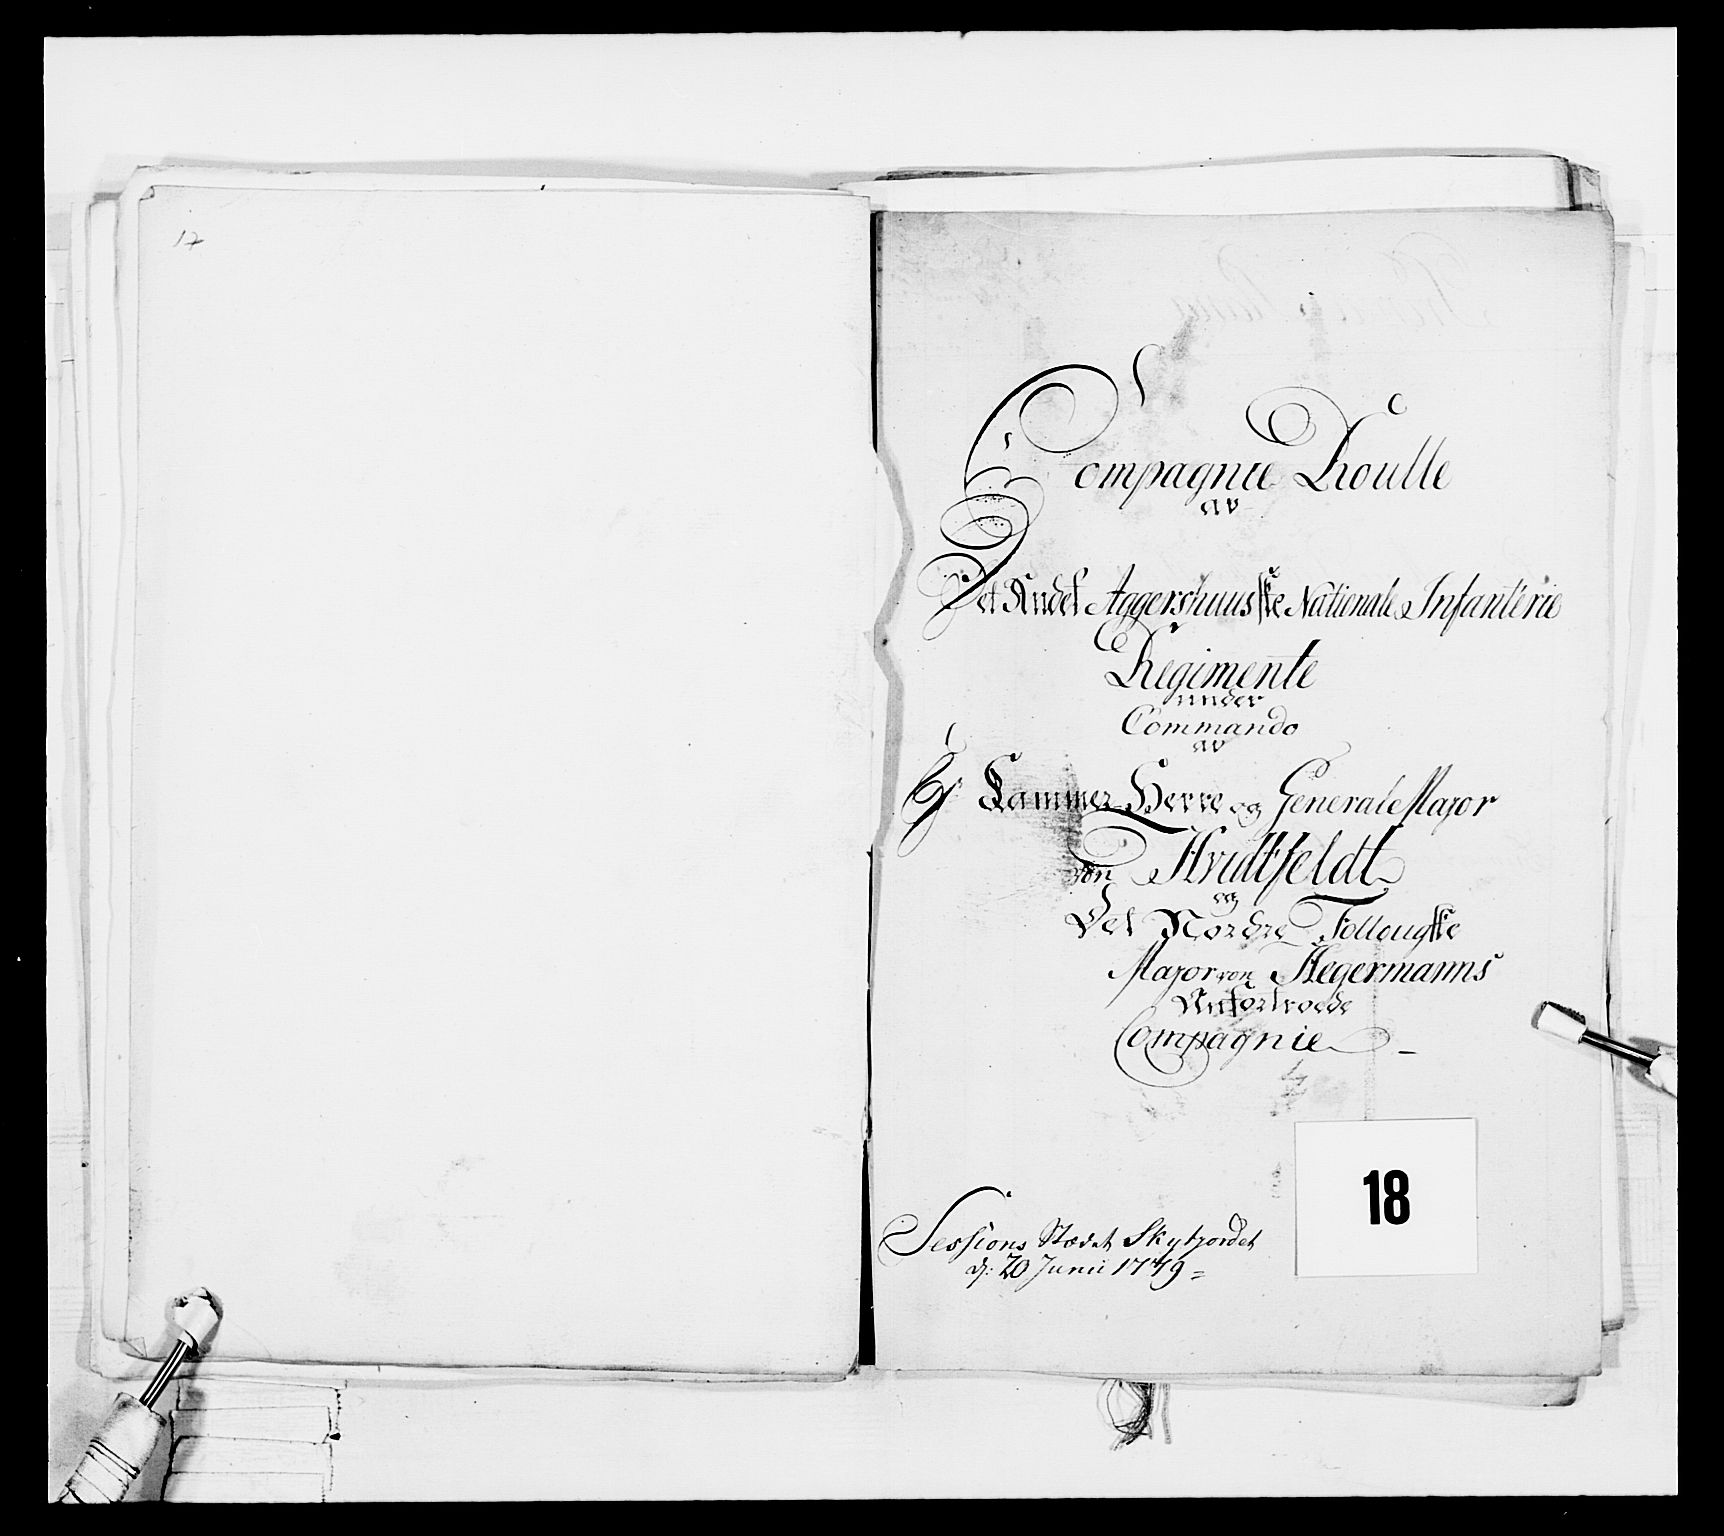 17
Compagnie Roulle
av
Det Andet Aggershuusske Nationale Infanterie
Regimente
under
Commando
av
Hr Cammer-Herre og General Major
von Hvidtfeldt
og
Det Nordre Follougske
Major von Hegermanns
Anfortroede
Compagnie -
Sessions Stædet Skybjordet
d: 20 Junii 1779 =
18